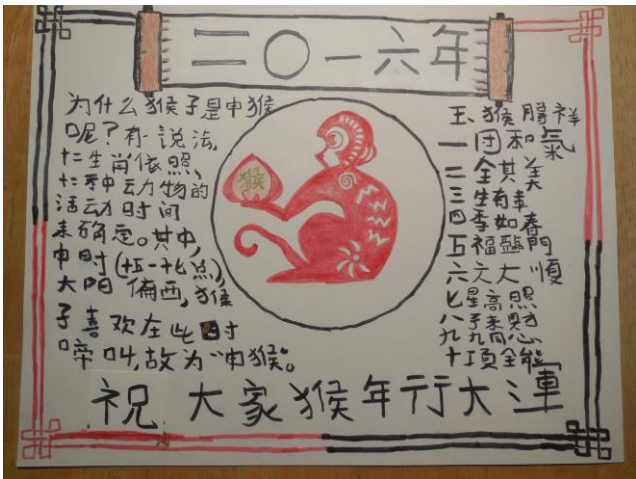 二〇一六年
为什么猴子是申猴
呢?有一说法,
十二生肖依照
十二种动物的
活动时间
来确定。其中,
申时(十五-十七点),
太阳偏西,猴
子喜欢在此时
啼叫,故为"申猴"。
猴
玉猴腾祥
一团和氣
二全其美
三生有幸
四季如春
五福臨門
六六大順
七星高照
八方来財
九九同心
十項全能
祝大家猴年行大運